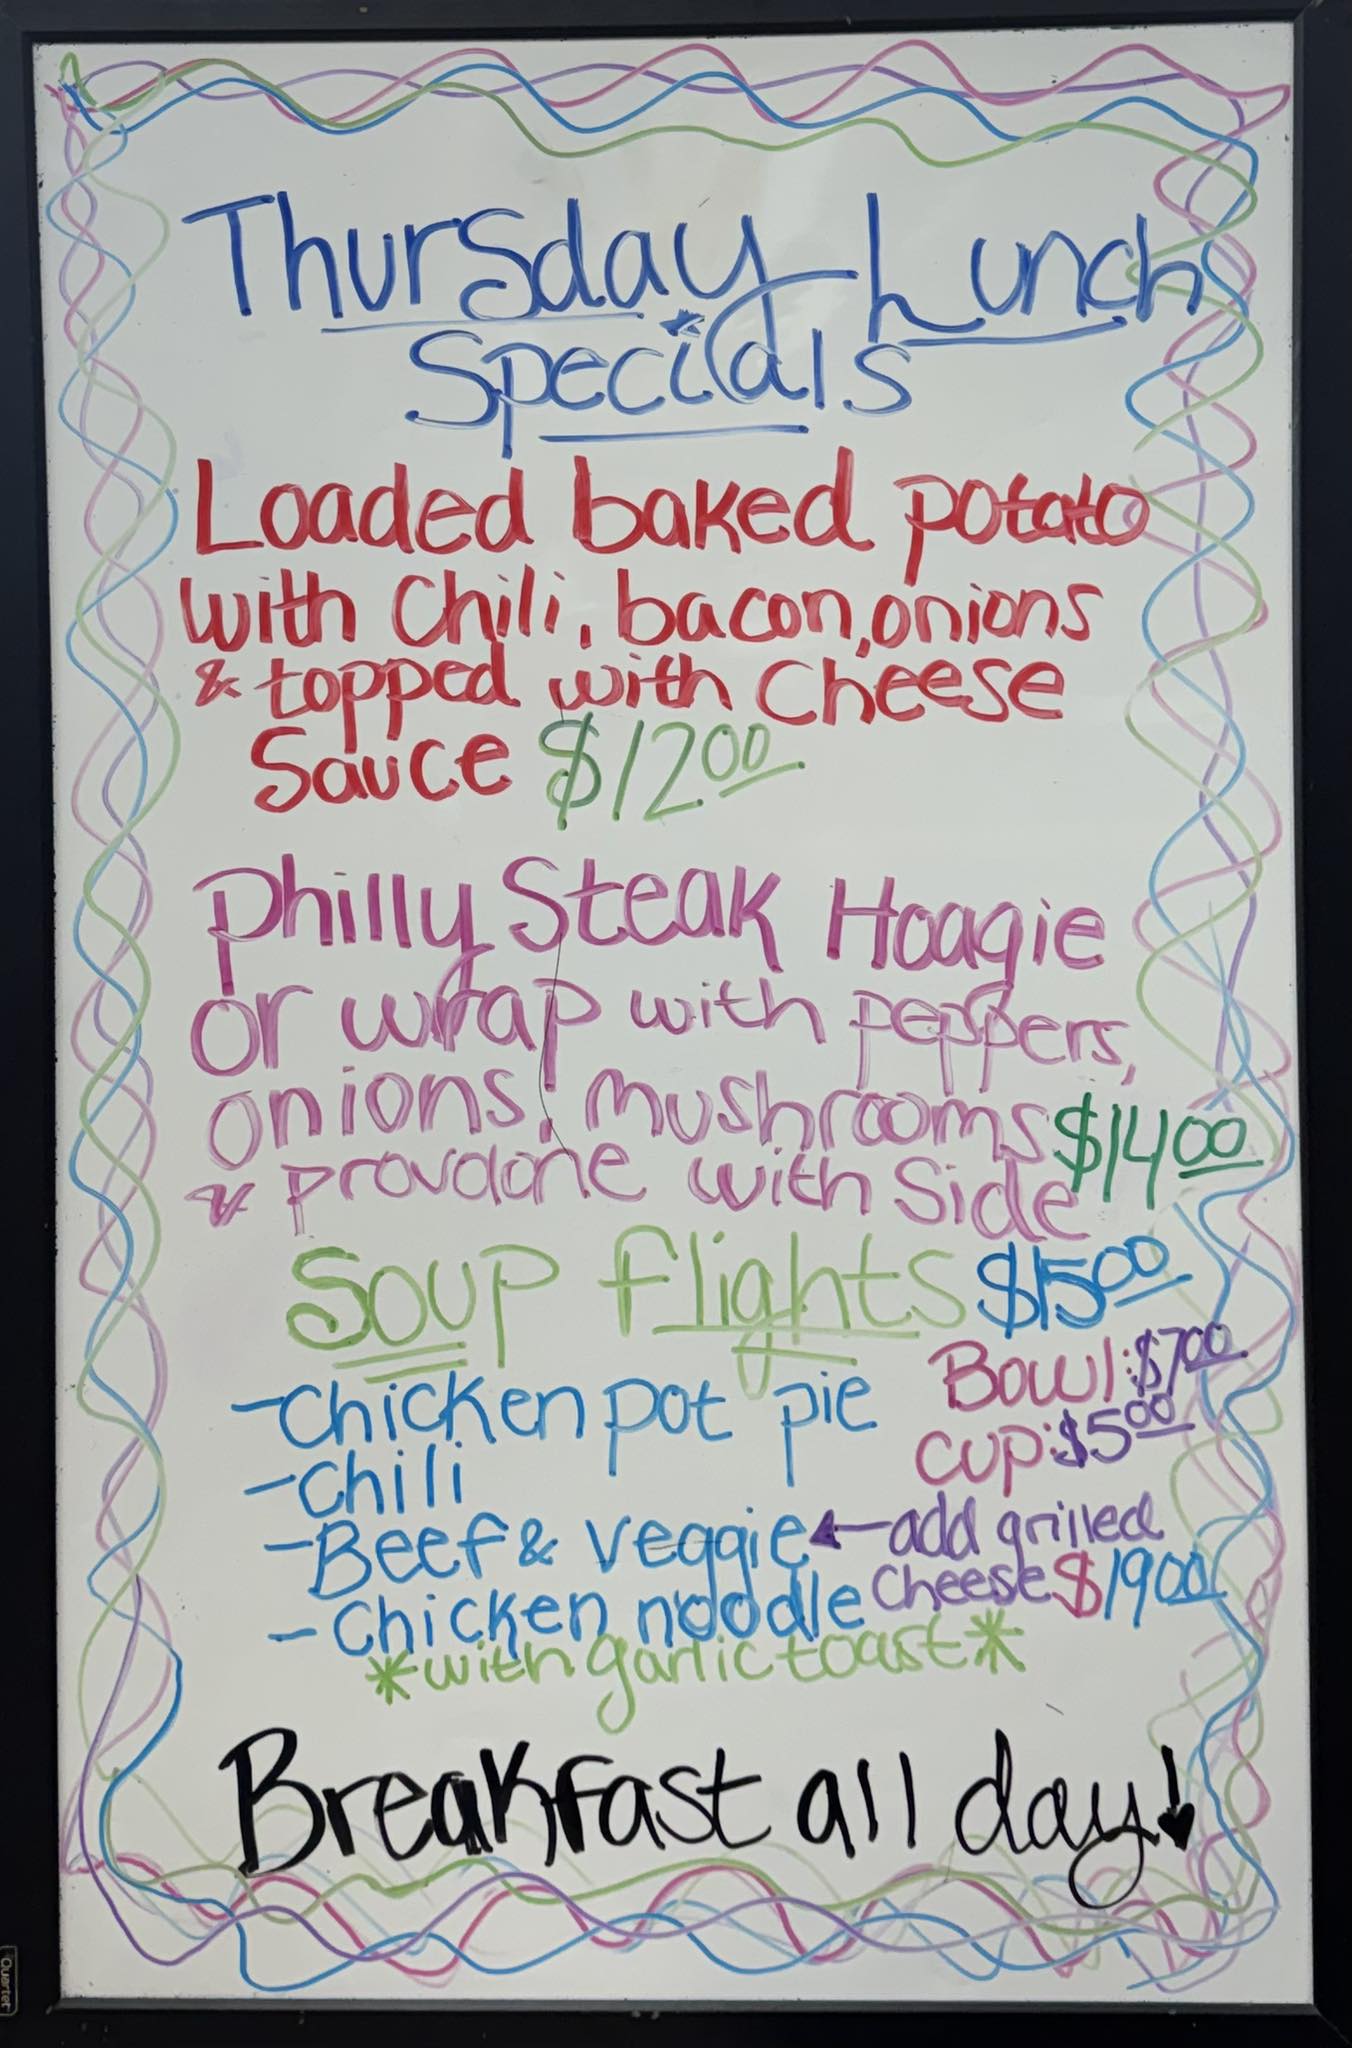 Thursday Lunch
Specials
Loaded baked potato
with Chili, bacon, onions
& topped with Cheese
Sauce $12.00
Philly Steak Hoagie
or wrap with peppers,
onions, mushrooms $14.00
& provolone with Side
Soup flights $15.00
Bowl: $7.00
-Chicken pot pie
cup: $5.00
-Chili
-Beef & veggie ←add grilled
Cheese $19.00
-Chicken noodle
*with garlic toast*
Breakfast all day!
Quartet